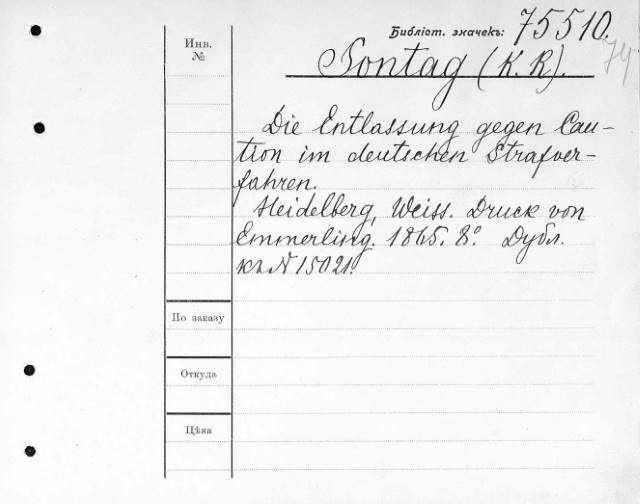 Библіот. значекъ: 75510.
74
Инв. №
Sontag (K. R).
Die Entlassung gegen Cau-
tion im deutschen Strafver-
fahren.
Heidelberg, Weiss. Druck von
Emmerling. 1865. 8°. Дубл.
къ N 15021.
По заказу
Откуда
Цѣна